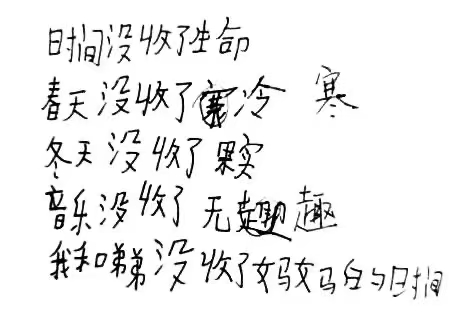 时间没收了生命
春天没收了寒冷 寒
冬天没收了果实
音乐没收了无趣趣
我和娣没收了妈妈白勺时间